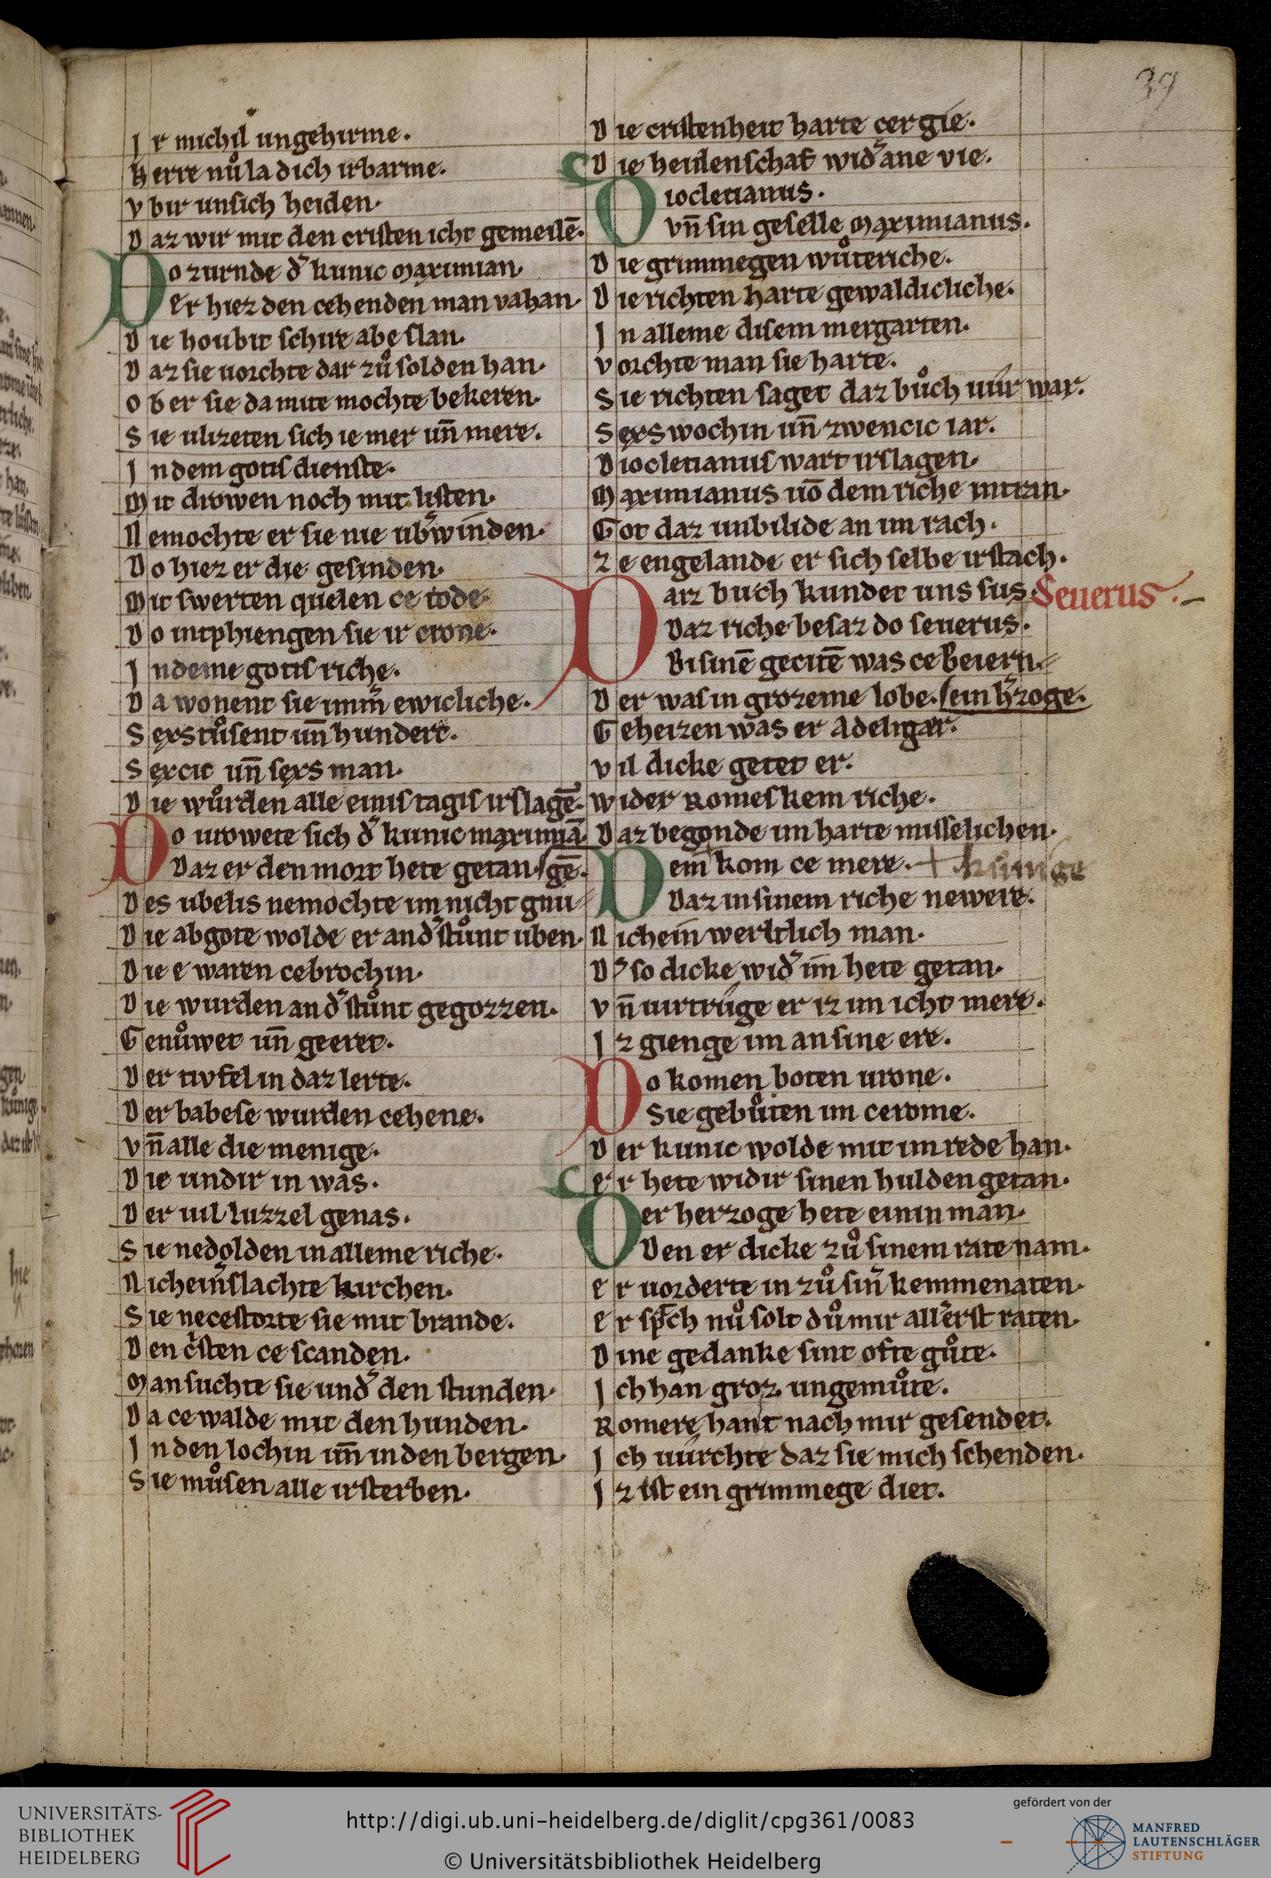 39
Ir michil ungehirme.
Herre nuͦ la dich irbarme.
vbir unsich heiden.
Daz wir mit den cristen icht gemeilē.
Do zurnde d͛ kunic maximian.
Er hiez den cehenden man vahan.
Die houbit schire abe slan.
Daz sie uorchte dar zuͦ solden han.
ober sie da mite mochte bekeren.
Sie ulizeten sich ie mer un̄ mere.
In dem gotis dienste.
Mit drowen noch mit listen.
Nemochte er sie nie ub͛winden.
Do hiez er die gesinden.
Mit swerten quelen ce tode.
Do intphiengen sie ir crone.
In deme gotis riche.
Da wonent sie imm͛ ewicliche.
Sexs tuͦsent un̄ hundert.
Sexcic un̄ sexs man.
Die wuͦrden alle einis tagis irslagē.
Do urowete sich d͛ kunic maximiā.
Daz er den mort hete getan. gē.
Des ubelis nemochte im nicht gnu
Die abgote wolde er and͛ stuͦnt uben.
Die e waren cebrochin.
Die wurden and͛ stuͦnt gegozzen.
Genuͦwet un̄ geeret.
Der tivfel in daz lerte.
Der babese wurden cehene.
vn̄ alle die menige.
Die undir in was.
Der uil luzzel genas.
Sie nedolden in alleme riche.
Nicheīn͛ slachte kirchen.
Sie necestorte sie mit brande.
Den c͛sten ce scanden.
Man suchte sie und͛ den stunden.
Da ce walde mit den hunden.
In den lochin un̄ in den bergen.
Sie muͦsen alle irsterben.
Die cristenheit harte cergie.
Die heidenschaft wid͛ ane vie.
Diocletianus.
vn̄ sin geselle maximianus.
Die grimmegen wuͦteriche.
Die richten harte gewaldicliche.
In alleme disem mergarten.
vorchte man sie harte.
Sie richten saget daz buͦch uúr war.
Sexs wochin un̄ zwencic iar.
Diocletianus wart irslagen.
Maximianus uō dem riche intran.
Got daz unbilide an im rach.
Ze engelande er sich selbe irstach.
Daz buch kundet uns sus. Seuerus.
Daz riche besaz do seuerus.
Bi sinē gecitē was ce beiern.
Der was in grozeme lobe. ein h͛zoge.
Geheizen was er Adelger.
vil dicke getet er.
wider Romeskem riche.
Daz begonde im harte misselichen.
Dem kom ce mere. + kunige
Daz in sinem riche newere.
Nichein werltlich man.
D͛ so dicke wid͛ im hete getan.
vn̄ uirtrúge er iz im icht mere.
Iz gienge im an sine ere.
Do komen boten urone.
Sie gebuͦten im ce rome.
Der kunic wolde mit im rede han.
er hete widir sinen hulden getan.
Der herzoge hete einin man.
Den er dicke zuͦ sinem rate nam.
er uorderte in zuͦ sin͛ kemmenaten.
er sp͛ch nuͦ solt duͦ mir all͛erst raten.
Dine gedanke sint ofte guͦte.
Ich han groz ungemuͦte.
Romere hant nach mir gesendet.
Ich uúrchte daz sie mich schenden.
Iz ist ein grimmege diet.
UNIVERSITÄTS-
BIBLIOTHEK
HEIDELBERG
http://digi.ub.uni-heidelberg.de/diglit/cpg361/0083
© Universitätsbibliothek Heidelberg
gefördert von der
MANFRED
LAUTENSCHLÄGER
STIFTUNG